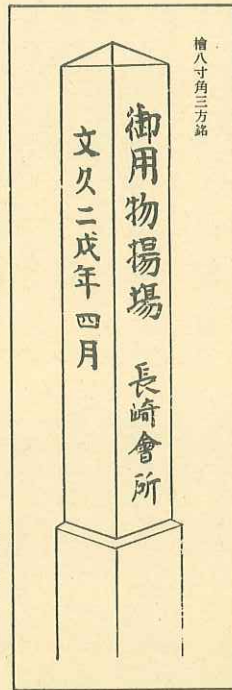 檜八寸角三方銘
御用物揚場　長崎會所
文久二戌年四月